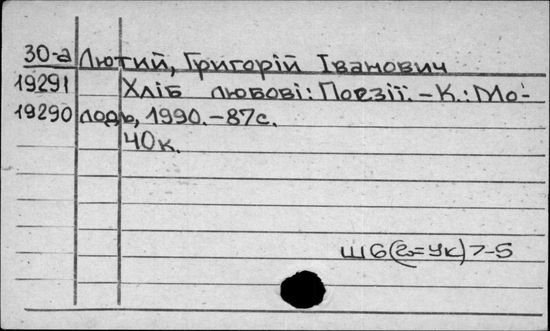 30-а Лютий, Григорій Іванович
19291 Хліб любові: Поезії. – К.: Мо-
19290 лодь, 1990. – 87с.
40к.
Ш6(2=Ук)7-5